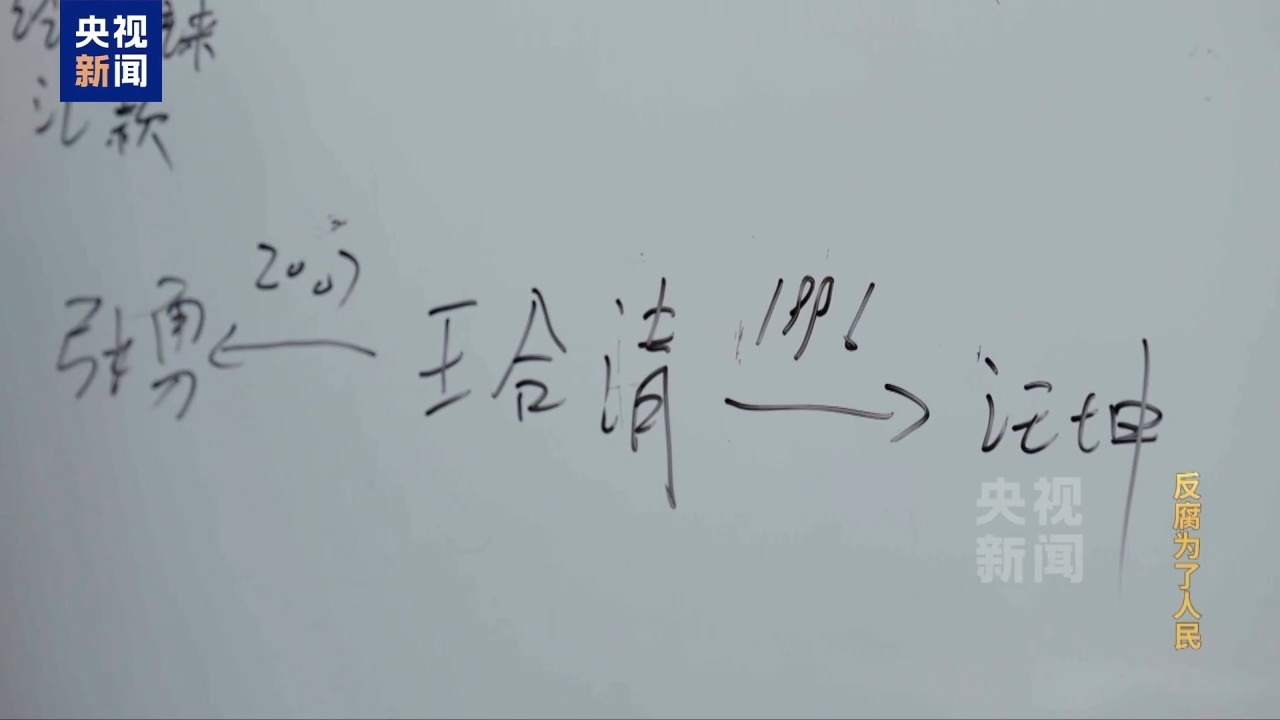 央视
新闻
汇款
2007
张勇 ← 王合清 → 汪坤
央视
新闻
反腐为了人民